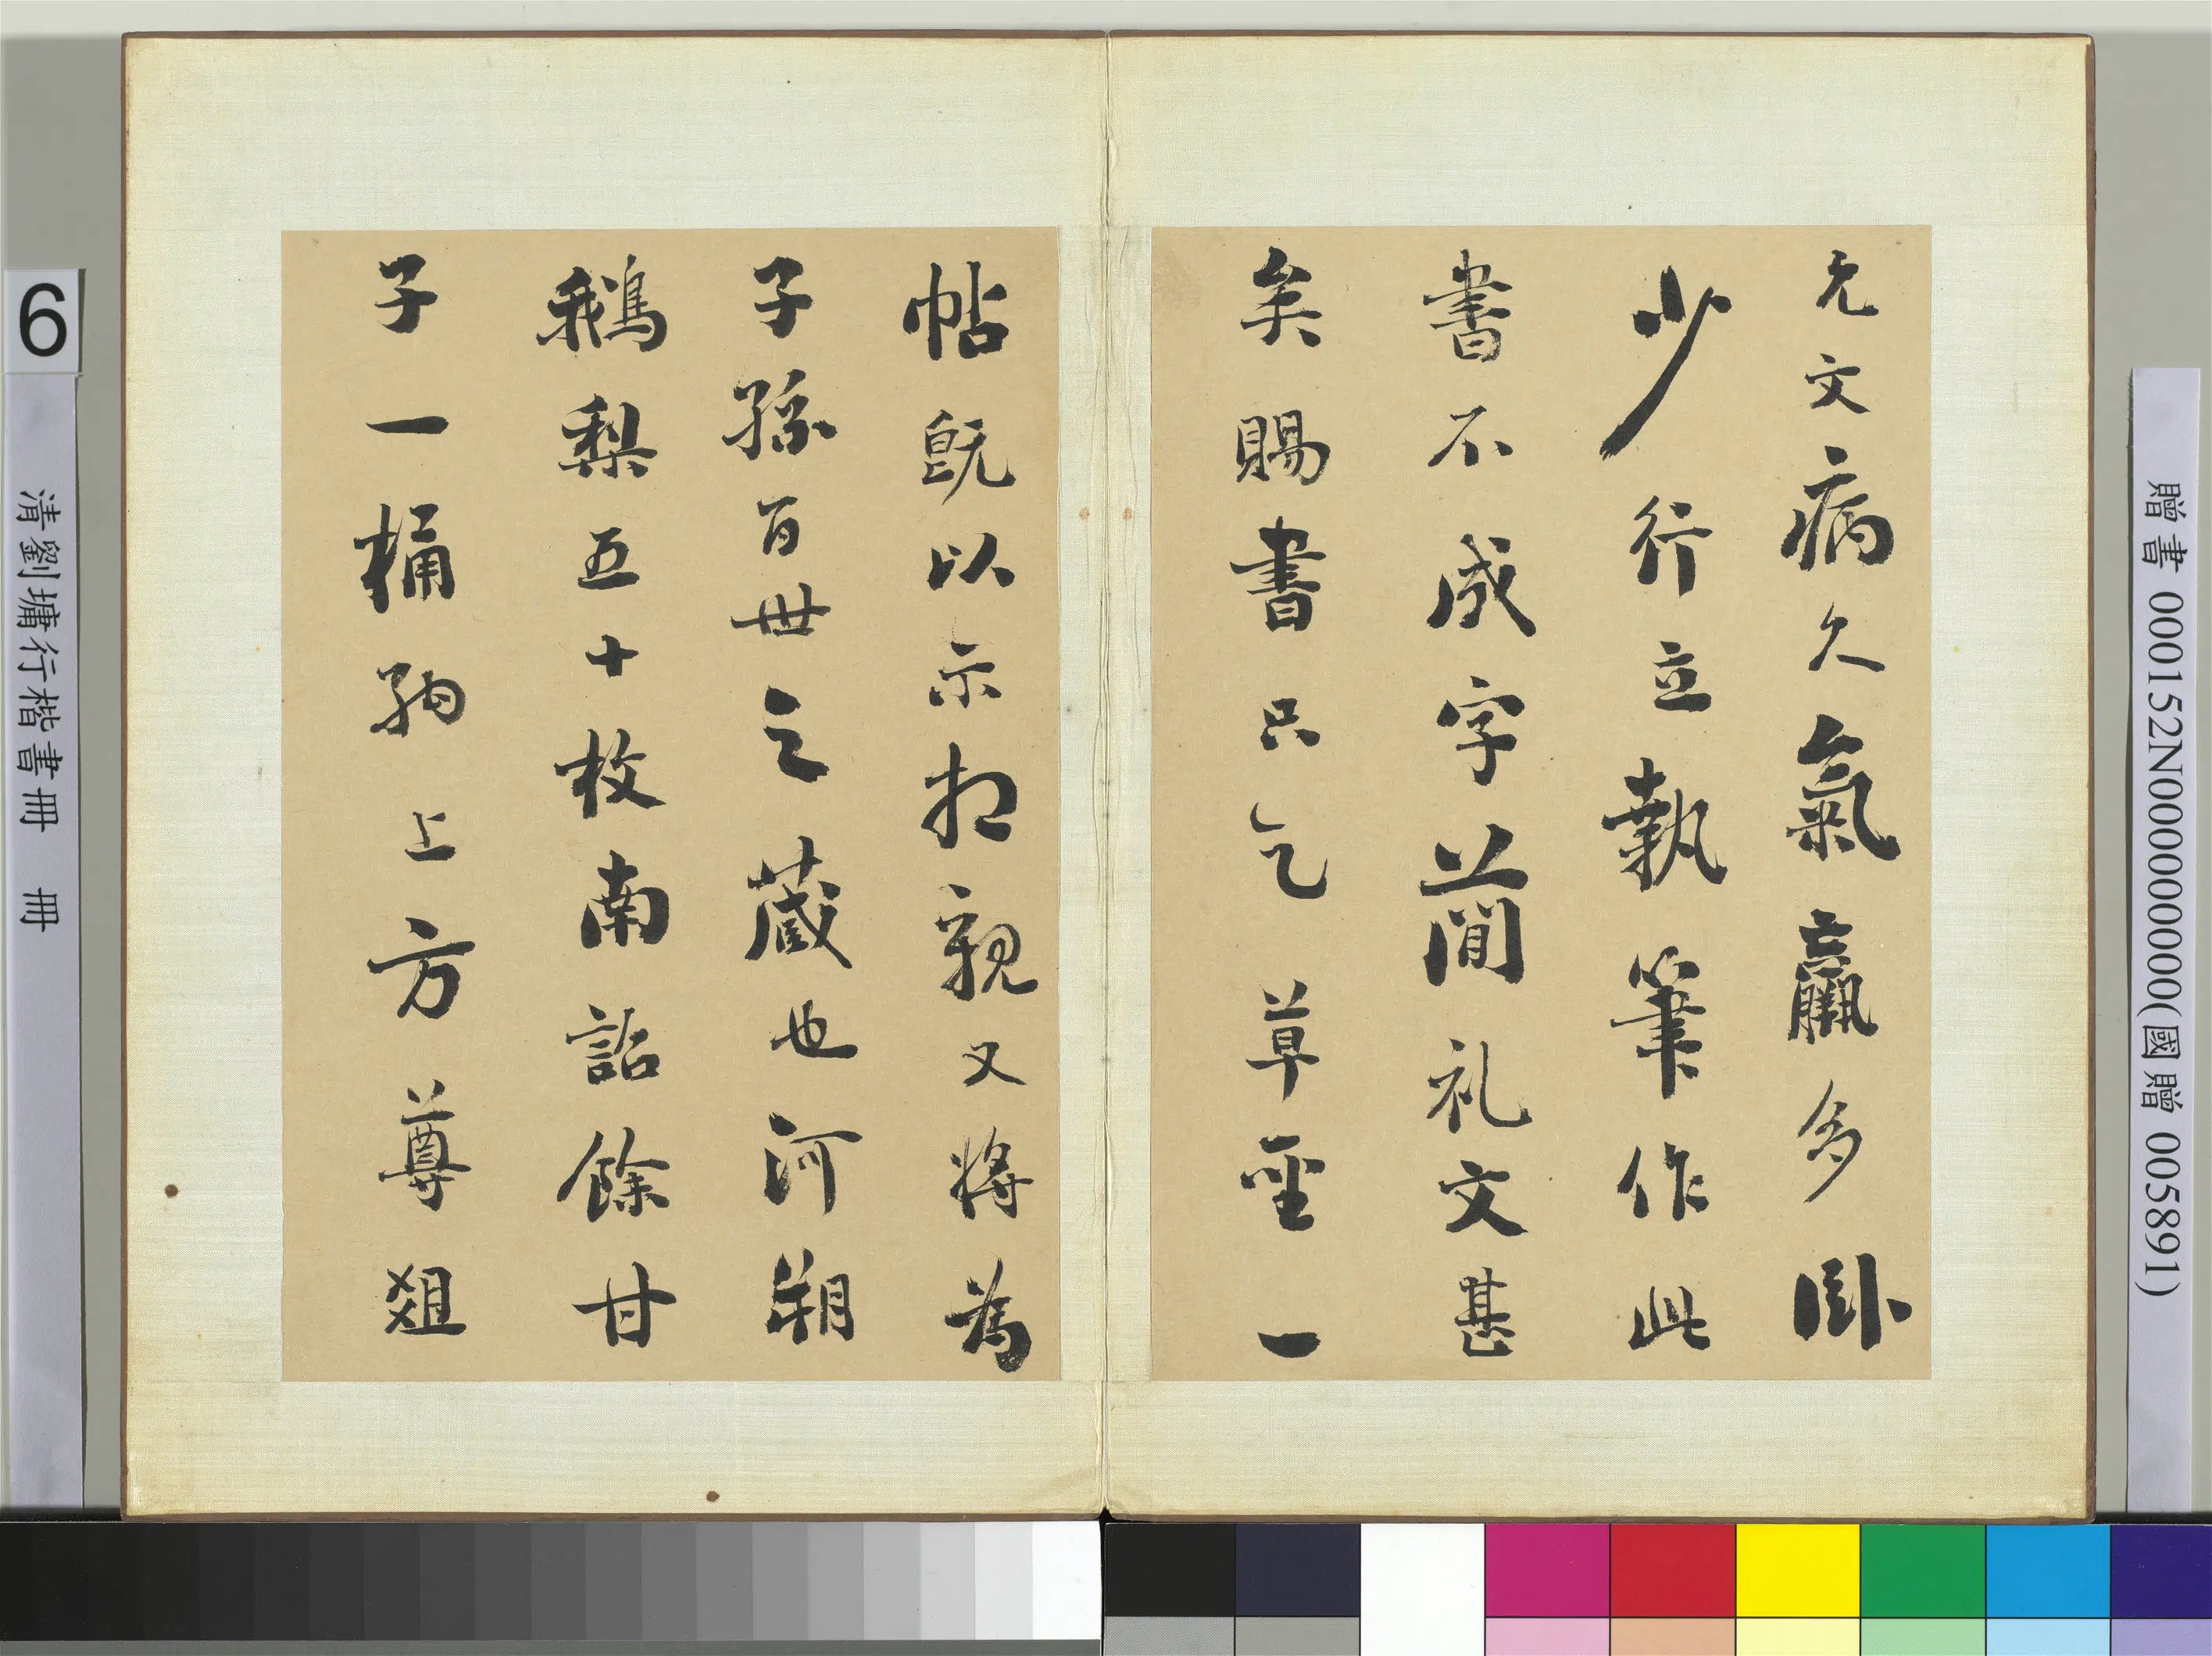 允文病久氣羸多卧
少行立執筆作此
書不成字簡礼文甚
矣賜書只乞草聖一
帖既以示相親又將為
子孫百世之藏也河朔
鵝梨五十枚南詔餘甘
子一桶納上方尊俎
6
清劉墉行楷書冊 冊
贈書 000152N000000000(國贈 005891)